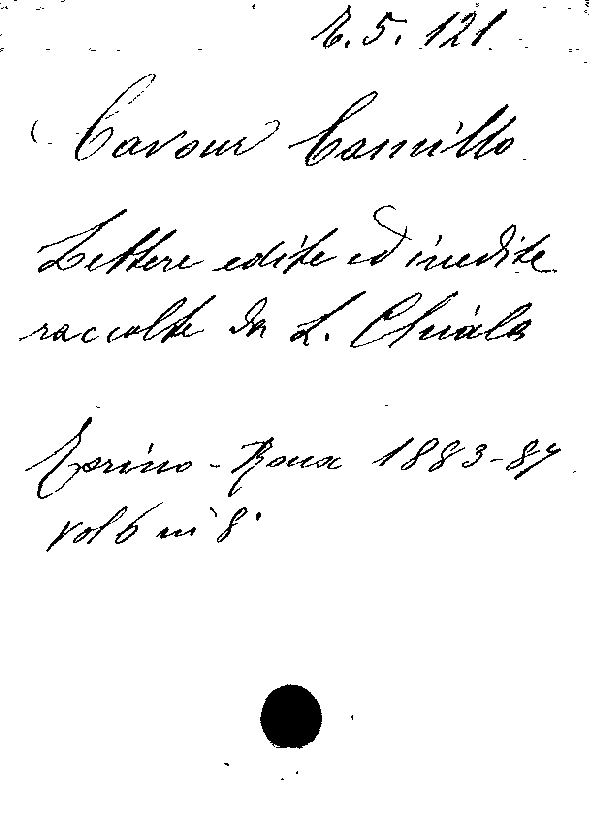 E. 5. 121
Cavour Camillo
Lettere edite ed inedite
raccolte da L. Chiala
Torino - Roux 1883-87
vol 6 in 8°